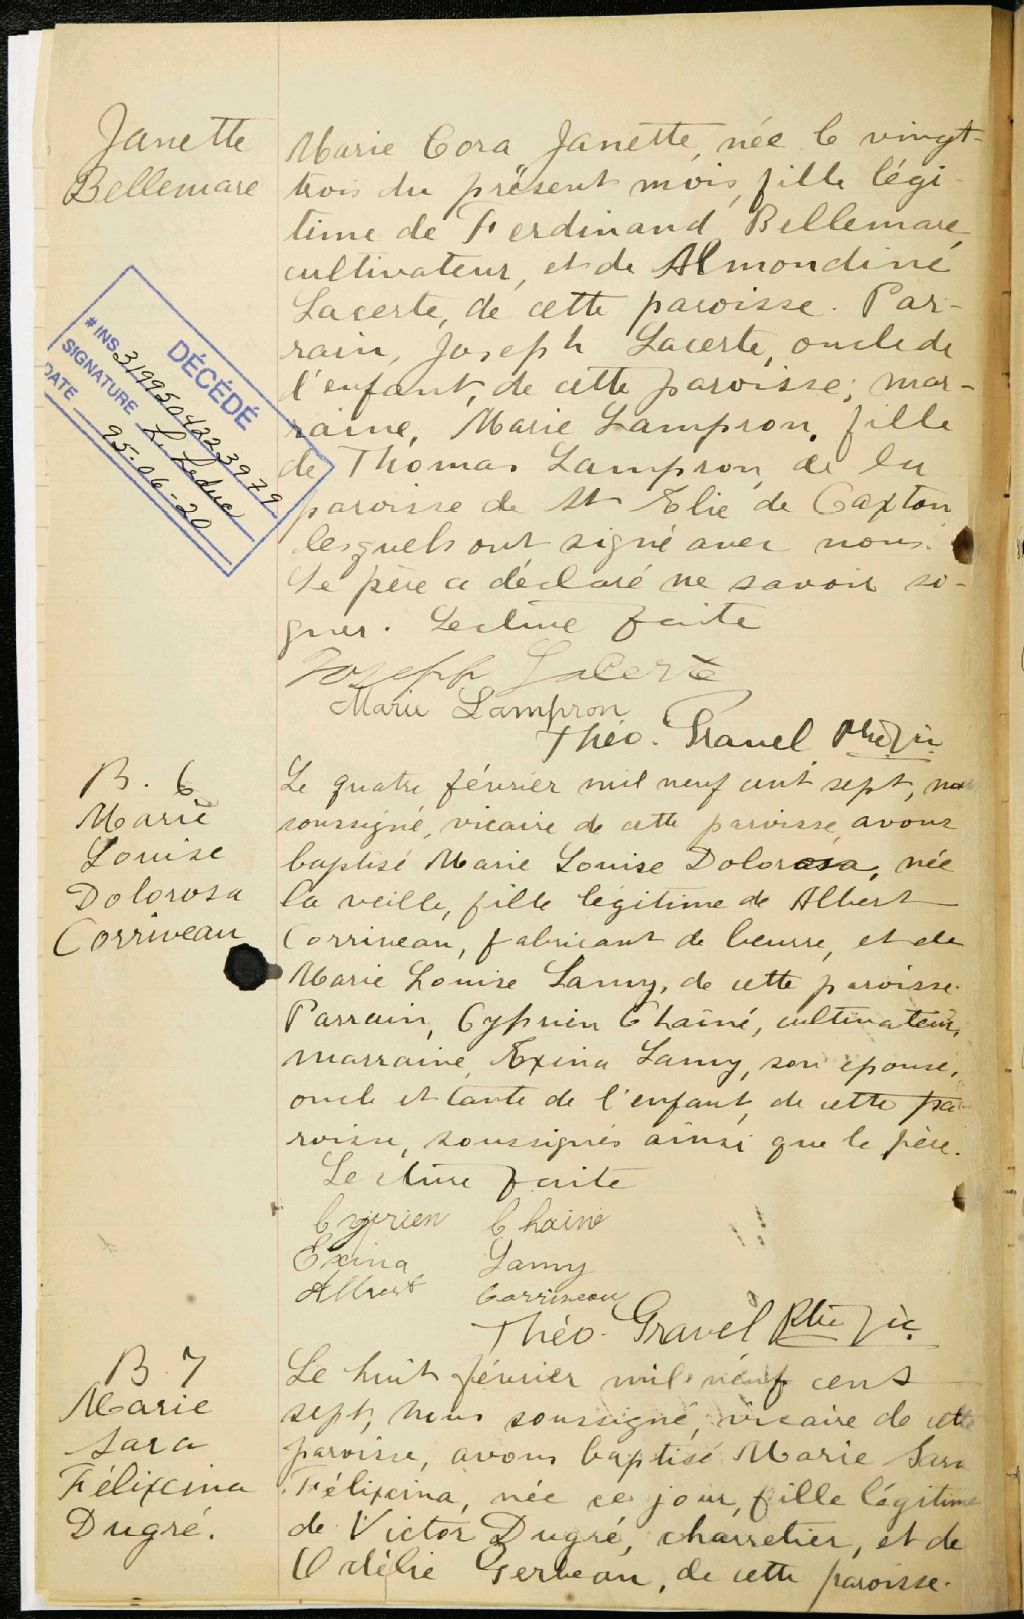 Janette
Bellemare
Marie Cora Janette, née le vingt-
trois du présent mois, fille légi-
time de Ferdinand Bellemare,
cultivateur, et de Almondine
Lacerte, de cette paroisse. Par-
rain, Joseph Lacerte, oncle de
l'enfant, de cette paroisse; mar-
raine, Marie Lampron, fille
de Thomas Lampron, de la
paroisse de St Elie de Caxton
lesquels ont signé avec nous.
Le père a déclaré ne savoir si-
gner. Lecture faite
Joseph Lacerte
Marie Lampron
Théo. Gravel Ptre Vic
DÉCÉDÉ
# INS. 3199504223979
SIGNATURE L. Leduc
DATE 95-06-20
B. 6
Marie
Louise
Dolorosa
Corriveau
Le quatre février mil neuf cent sept, nous
soussigné, vicaire de cette paroisse, avons
baptisé Marie Louise Dolorosa, née
la veille, fille légitime de Albert
Corriveau, fabricant de beurre, et de
Marie Louise Lamy, de cette paroisse.
Parrain, Cyprien Chaîné, cultivateur,
marraine, Exina Lamy, son épouse,
oncle et tante de l'enfant, de cette pa-
roisse, soussignés ainsi que le père.
Lecture faite
Cyprien Chaine
Exina Lamy
Albert Corriveau
Théo. Gravel Ptre Vic.
B 7
Marie
Sara
Félixina
Dugré.
Le huit février mil neuf cent
sept, nous soussigné, vicaire de cette
paroisse, avons baptisé Marie Sara
Félixina, née ce jour, fille légitime
de Victor Dugré, charretier, et de
Odélie Gerbeau, de cette paroisse.